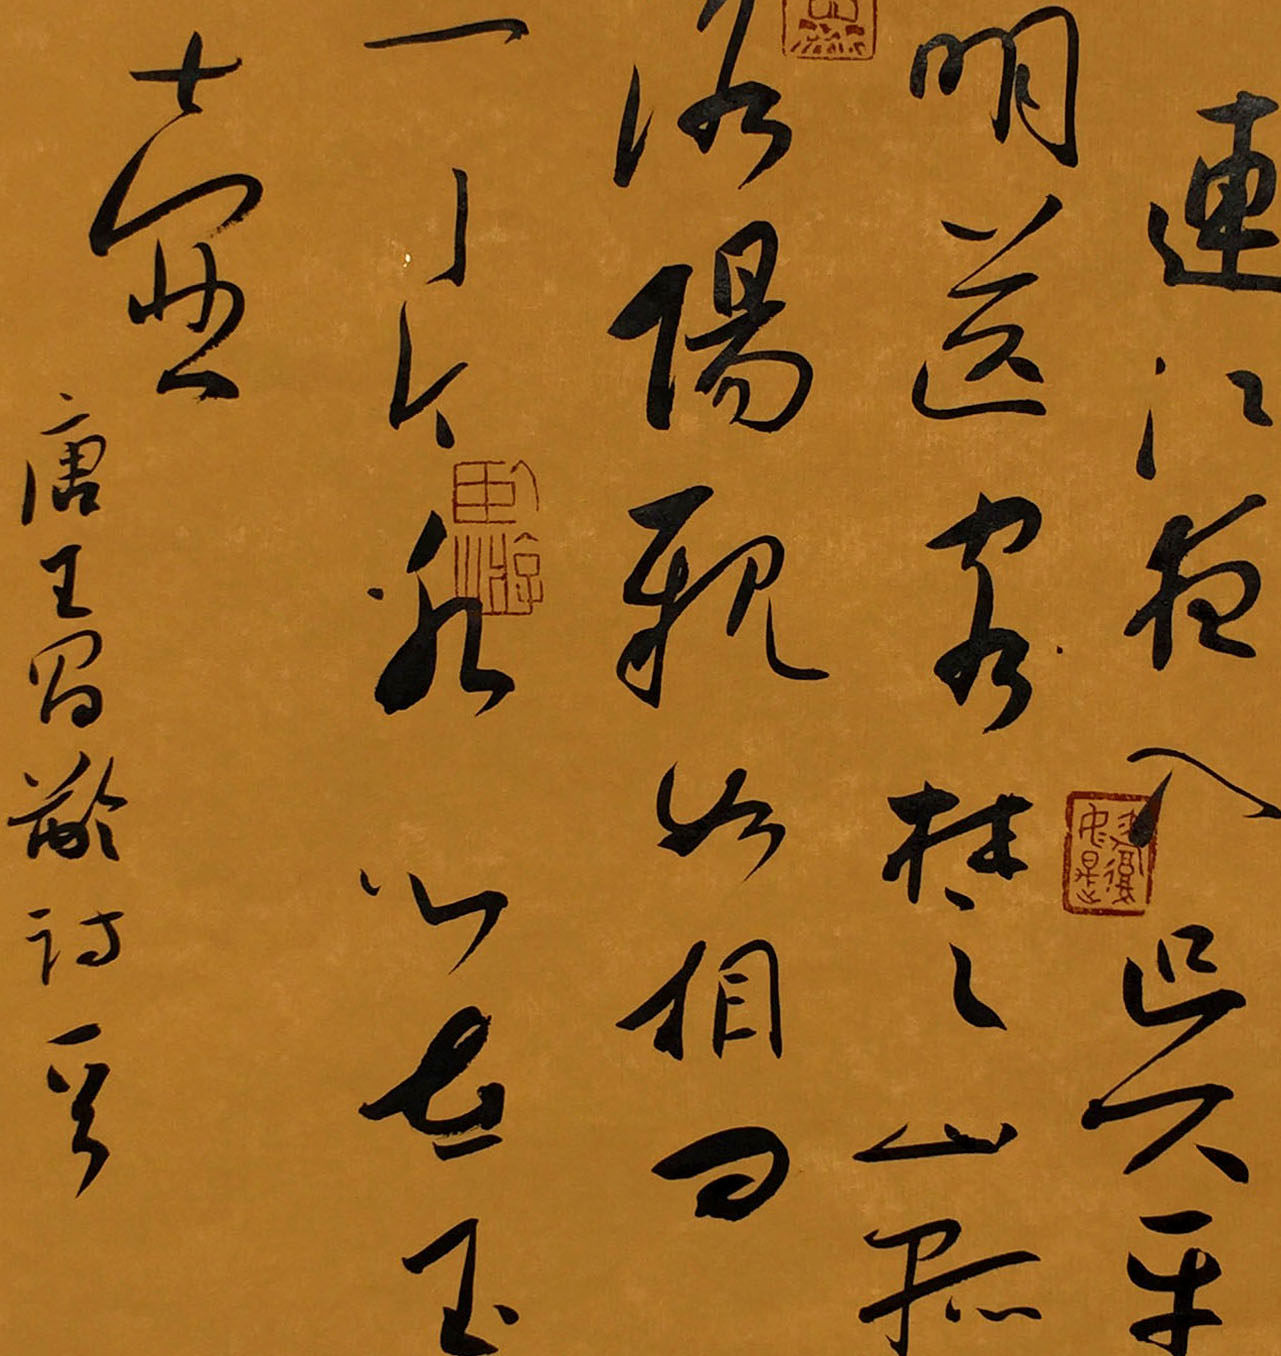 連江夜入吳平
明送客楚山孤
洛陽親如相問
一片冰心在玉
壺
唐王昌齡詩